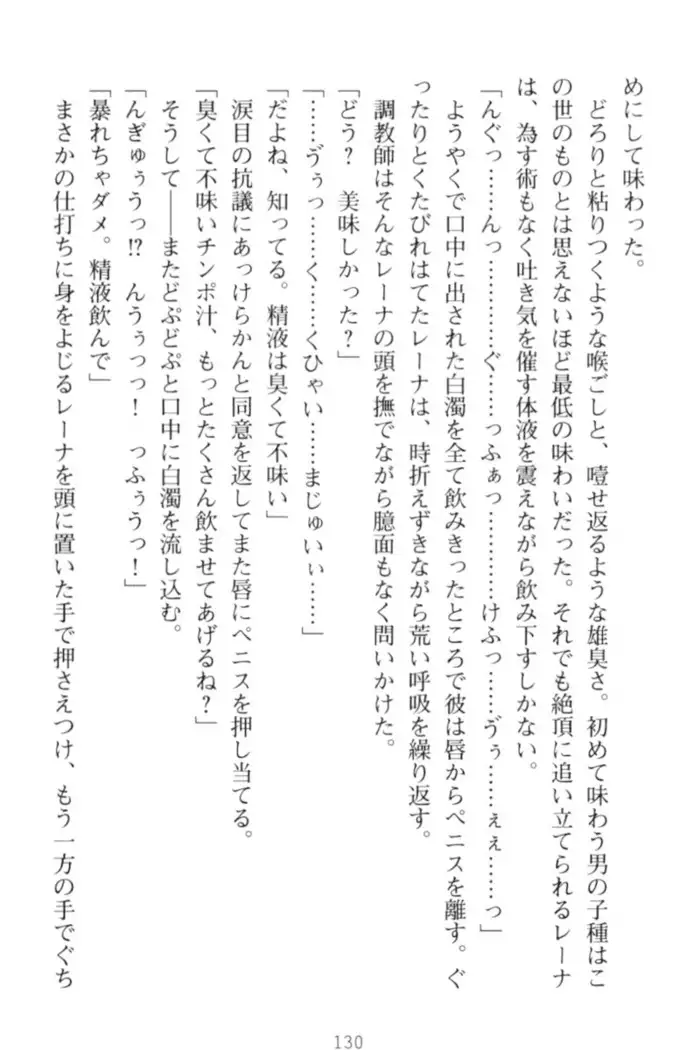 めにして味わった。
どろりと粘りつくような喉ごしと、噎せ返るような雄臭さ。初めて味わう男の子種はこ
の世のものとは思えないほど最低の味わいだった。それでも絶頂に追い立てられるレーナ
は、為す術もなく吐き気を催す体液を震えながら飲み下すしかない。
「んぐっ……んっ…………ぐ……っふぁっ…………けふっ……ゔぅ……ぇぇ……っ」
ようやくで口中に出された白濁を全て飲みきったところで彼は唇からペニスを離す。ぐ
ったりとくたびれはてたレーナは、時折えずきながら荒い呼吸を繰り返す。
調教師はそんなレーナの頭を撫でながら臆面もなく問いかけた。
「どう？　美味しかった？」
「……ゔぅっ……く……くひゃい……まじゅいぃ……」
「だよね、知ってる。精液は臭くて不味い」
涙目の抗議にあっけらかんと同意を返してまた唇にペニスを押し当てる。
「臭くて不味いチンポ汁、もっとたくさん飲ませてあげるね？」
そうして――またどぷどぷと口中に白濁を流し込む。
「んぎゅぅうっ!?　んうぅっっ！　っふぅうっ！」
「暴れちゃダメ。精液飲んで」
まさかの仕打ちに身をよじるレーナを頭に置いた手で押さえつけ、もう一方の手でぐち
130